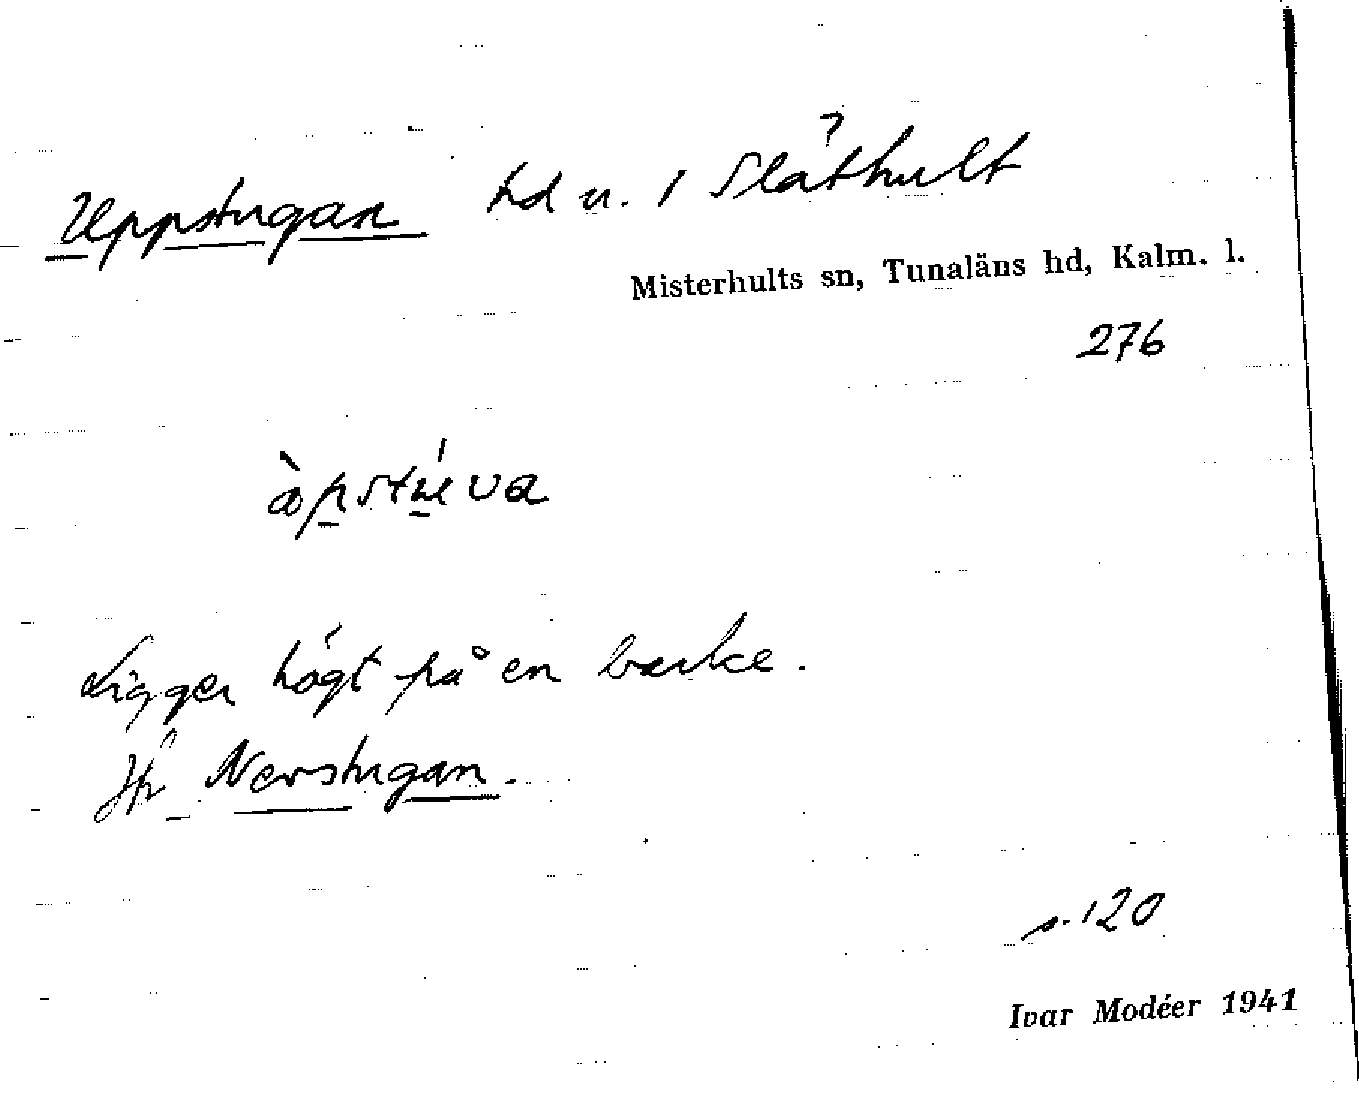 Uppstugan hd u. 1 Släthult
Misterhults sn, Tunaläns hd, Kalm. l.
276
Ligger högt på en backe.
Jfr Nerstugan.
s. 120
Ivar Modéer 1941